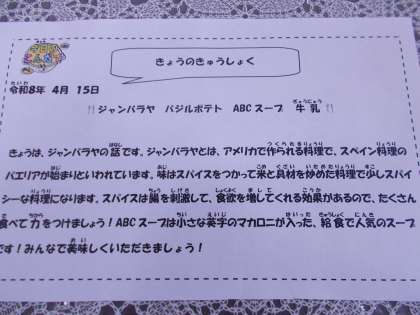 きょうのきゅうしょく
令和8年 4月 15日
!!ジャンバラヤ バジルポテト ABCスープ 牛乳!!
きょうは、ジャンバラヤの話です。ジャンバラヤとは、アメリカで作られる料理で、スペイン料理の
パエリアが始まりといわれています。味はスパイスをつかって米と具材を炒めた料理で少しスパイ
シーな料理になります。スパイスは腸を刺激して、食欲を増してくれる効果があるので、たくさん
食べて力をつけましょう！ABCスープは小さな英字のマカロニが入った、給食で人気のスープ
です！みんなで美味しくいただきましょう！